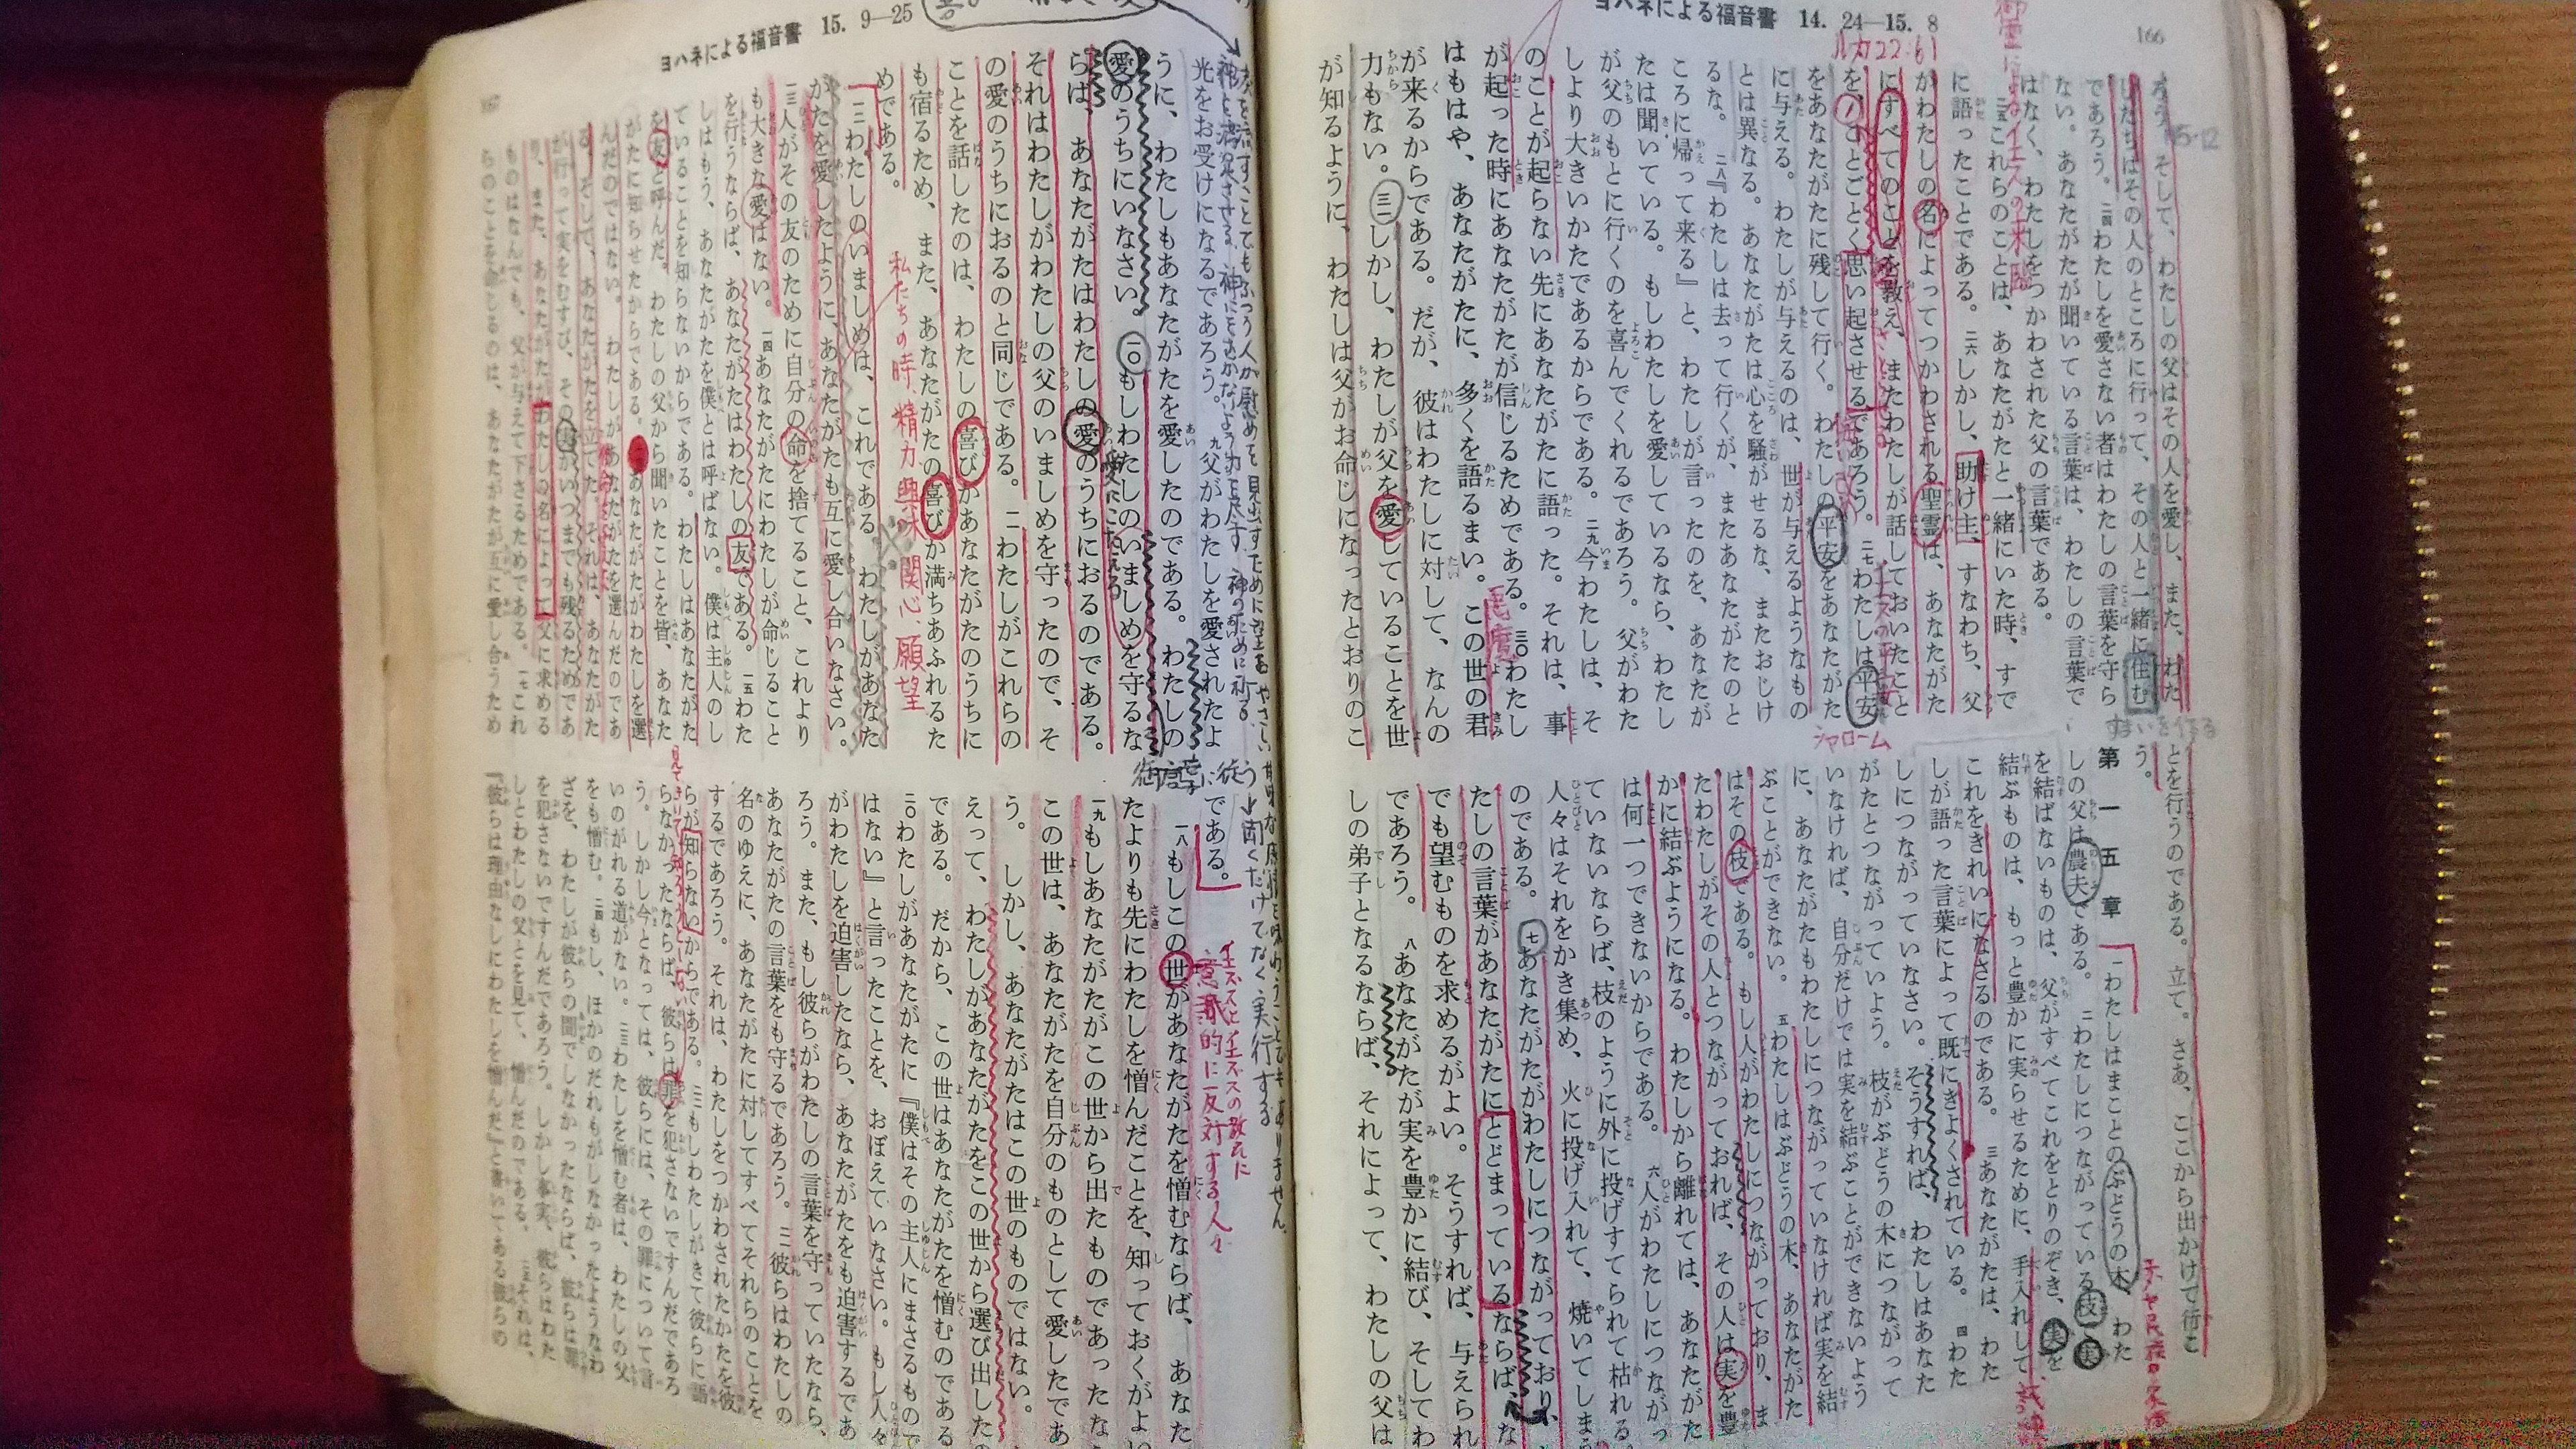 ヨハネによる福音書 14. 24—15. 8
166
ルカ22:61
ろう。そして、わたしの父はその人を愛し、また、わた
したちはその人のところに行って、その人と一緒に住む
であろう。二四わたしを愛さない者はわたしの言葉を守ら
ない。あなたがたが聞いている言葉は、わたしの言葉で
はなく、わたしをつかわされた父の言葉である。
二五これらのことは、あなたがたと一緒にいた時、すで
に語ったことである。二六しかし、助け主、すなわち、父
がわたしの名によってつかわされる聖霊は、あなたがた
にすべてのことを教え、またわたしが話しておいたこと
を、ことごとく思い起させるであろう。二七わたしは平安
をあなたがたに残して行く。わたしの平安をあなたがた
に与える。わたしが与えるのは、世が与えるようなもの
とは異なる。あなたがたは心を騒がせるな、またおじけ
るな。二八『わたしは去って行くが、またあなたがたのと
ころに帰って来る』と、わたしが言ったのを、あなたが
たは聞いている。もしわたしを愛しているなら、わたし
が父のもとに行くのを喜んでくれるであろう。父がわた
しより大きいかたであるからである。二九今わたしは、そ
のことが起らない先にあなたがたに語った。それは、事
が起った時にあなたがたが信じるためである。三〇わたし
はもはや、あなたがたに、多くを語るまい。この世の君
が来るからである。だが、彼はわたしに対して、なんの
力もない。三一しかし、わたしが父を愛していることを世
が知るように、わたしは父がお命じになったとおりのこ
シャローム
すまいを作る
とを行うのである。立て。さあ、ここから出かけて行こ
う。
第一五章
一わたしはまことのぶどうの木、わた
しの父は農夫である。二わたしにつながっている枝で実
を結ばないものは、父がすべてこれをとりのぞき、実を
結ぶものは、もっと豊かに実らせるために、手入れして
これをきれいになさるのである。三あなたがたは、わた
しが語った言葉によって既にきよくされている。四わた
しにつながっていなさい。そうすれば、わたしはあなた
がたとつながっていよう。枝がぶどうの木につながって
いなければ、自分だけでは実を結ぶことができないよう
に、あなたがたもわたしにつながっていなければ実を結
ぶことができない。五わたしはぶどうの木、あなたがた
はその枝である。もし人がわたしにつながっており、ま
たわたしがその人とつながっておれば、その人は実を豊
かに結ぶようになる。わたしから離れては、あなたがた
は何一つできないからである。六人がわたしにつながっ
ていないならば、枝のように外に投げすてられて枯れる。
人々はそれをかき集め、火に投げ入れて、焼いてしまう
のである。七あなたがたがわたしにつながっており、
たしの言葉があなたがたにとどまっているならば、な
でも望むものを求めるがよい。そうすれば、与えられ
であろう。八あなたがたが実を豊かに結び、そしてわ
しの弟子となるならば、それによって、わたしの父は
ヨハネによる福音書 15. 9—25
167
光をお受けになるであろう。九父がわたしを愛されたよ
うに、わたしもあなたがたを愛したのである。わたしの
愛のうちにいなさい。一〇もしわたしのいましめを守るな
らば、あなたがたはわたしの愛のうちにおるのである。
それはわたしがわたしの父のいましめを守ったので、そ
の愛のうちにおるのと同じである。一一わたしがこれらの
ことを話したのは、わたしの喜びがあなたがたのうちに
も宿るため、また、あなたがたの喜びが満ちあふれるた
めである。
私たちの時、精力、興味、関心、願望
一二わたしのいましめは、これである。わたしがあなた
がたを愛したように、あなたがたも互に愛し合いなさい。
一三人がその友のために自分の命を捨てること、これより
も大きな愛はない。一四あなたがたにわたしが命じること
を行うならば、あなたがたはわたしの友である。一五わた
しはもう、あなたがたを僕とは呼ばない。僕は主人のし
ていることを知らないからである。わたしはあなたがた
を友と呼んだ。わたしの父から聞いたことを皆、あなた
がたに知らせたからである。あなたがたがわたしを選
んだのではない。わたしがあなたがたを選んだのであ
る。そして、あなたがたを立てた。それは、あなたがた
が行って実をむすび、その実がいつまでも残るためであ
り、また、あなたがたがわたしの名によって父に求める
ものはなんでも、父が与えて下さるためである。一七これ
らのことを命じるのは、あなたがたが互に愛し合うため
である。
聞くだけでなく実行する
イエスとイエスの教えに
意識的に反対する人々
一八もしこの世があなたがたを憎むならば、あなた
たよりも先にわたしを憎んだことを、知っておくがよい
一九もしあなたがたがこの世から出たものであったな
この世は、あなたがたを自分のものとして愛したであ
う。しかし、あなたがたはこの世のものではない。
えって、わたしがあなたがたをこの世から選び出した
である。だから、この世はあなたがたを憎むのである
二〇わたしがあなたがたに『僕はその主人にまさるもので
はない』と言ったことを、おぼえていなさい。もし人々
がわたしを迫害したなら、あなたがたをも迫害するであ
ろう。また、もし彼らがわたしの言葉を守っていたなら、
あなたがたの言葉をも守るであろう。二一彼らはわたしの
名のゆえに、あなたがたに対してすべてそれらのことを
するであろう。それは、わたしをつかわされたかたを彼
らが知らないからである。二二もしわたしがきて彼らに語
らなかったならば、彼らは罪を犯さないですんだであろ
う。しかし今となっては、彼らには、その罪について言
いのがれる道がない。二三わたしを憎む者は、わたしの父
をも憎む。二四もし、ほかのだれもがしなかったようなわ
ざを、わたしが彼らの間でしなかったならば、彼らは罪
を犯さないですんだであろう。しかし事実、彼らはわた
しとわたしの父とを見て、憎んだのである。二五それは、
『彼らは理由なしにわたしを憎んだ』と書いてある彼らの